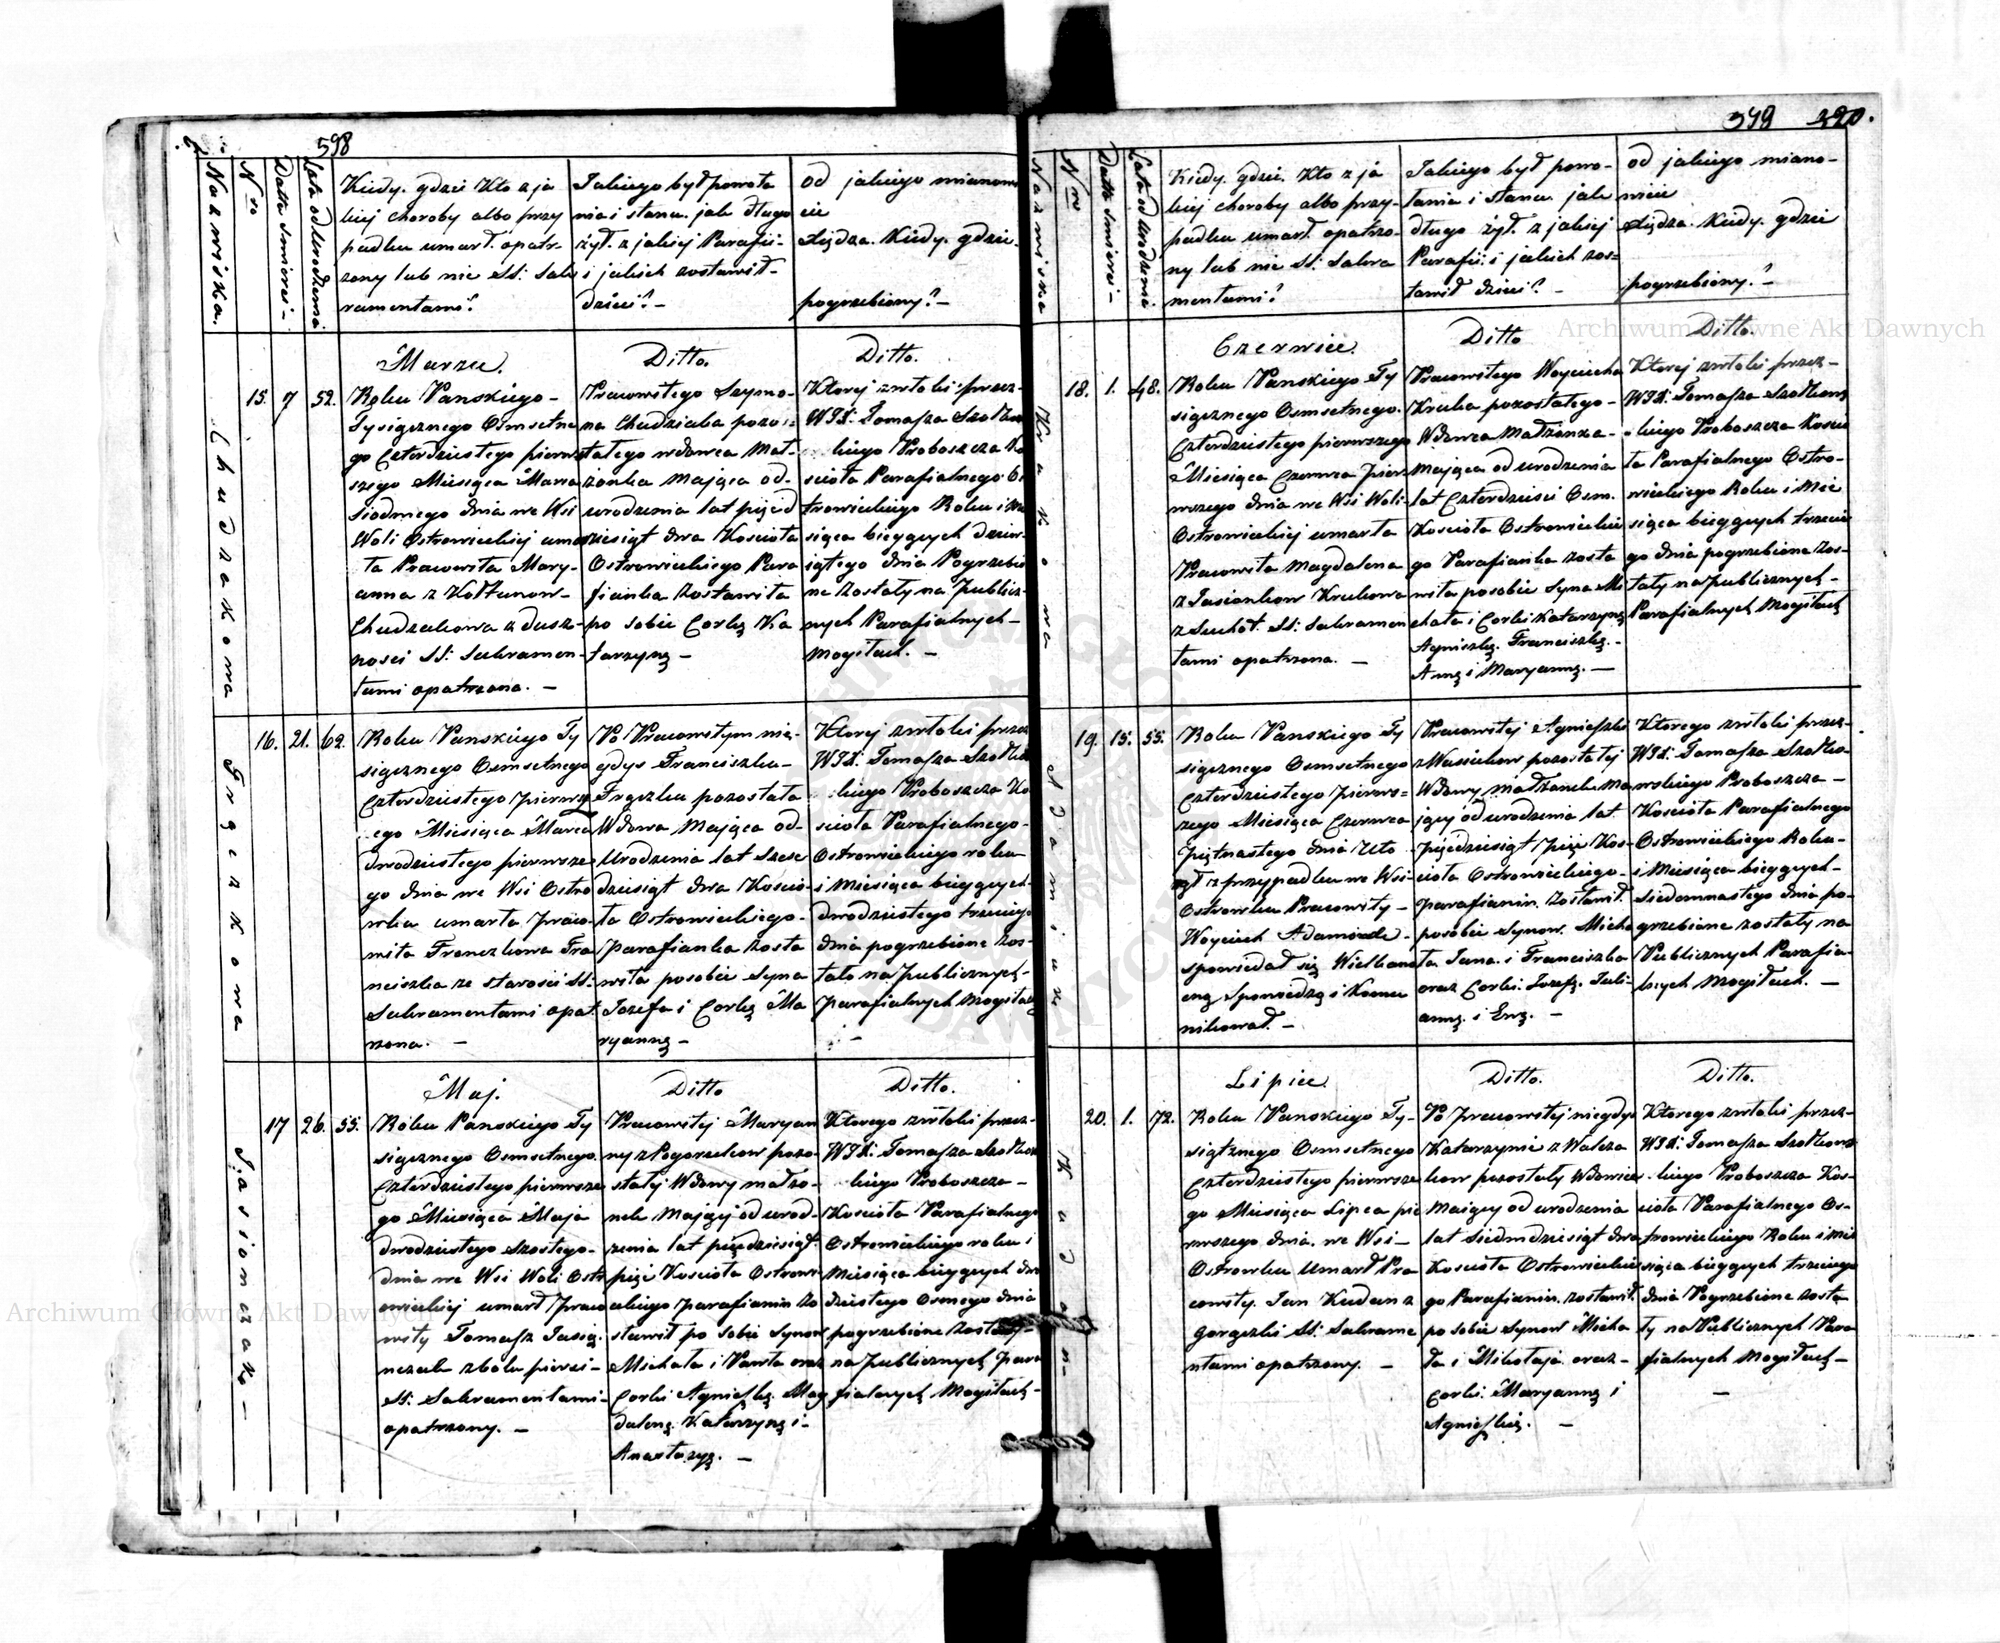 598
Nazwiska.
N ro
Datta Smierci -
Lata od Urodzenia
Kiedy. gdzie Kto z ja
kiej choroby albo przy
padku umarł. opatr-
zony lub nie SS: Sak
ramentami?
Jakiego był powoła
nia i stanu. jak długo
żył. z jakiej Parafii-
i jakich zostawił-
dzieci? -
od jakiego mianow
cie
Księdza. Kiedy. gdzie.
pogrzebiony? -
Marzec.
Ditto.
Ditto.
Chudzakowa
15. 7 52.
Roku Panskiego -
Tysiącznego Osmsetne
go Czterdziestego pierw
szego Miesiąca Marca
Siodmego dnia we Wsi
Woli Ostrowieckiej umar
ła Pracowita Mary-
anna z Kołtunow-
Chudzakowa z dusz-
nosci SS: Sakramen-
tami opatrzona. -
Pracowitego Szymo-
na Chudziaka pozos
tałego wdowca Mał-
żonka mająca od-
urodzenia lat pięćd
ziesiąt dwa Kościoła
Ostrowieckiego Para
fianka Zostawiła
po sobie Corkę Ka
tarzynę -
Ktorej zwłoki przez-
WJX: Tomasza Szołkow
kiego Proboszcza Ko
scioła Parafialnego Os
trowieckiego Roku i Mie
siąca bieżących dziew-
iątego dnia Pogrzebio
ne Zostały na Publicz-
nych Parafialnych-
Mogiłach. -
Frączkowa
16. 21. 62.
Roku Panskiego Ty
siącznego Osmsetnego
Czterdziestego pierwsz
ego Miesiąca Marca
dwodziestego pierwsze
go dnia we Wsi Ostro
wku umarła praco-
wita Fronczkowa Fra
nciszka ze starosci SS:
Sakramentami opat
rzona. -
Po Pracowitym nie-
gdys Franciszku-
Frączku pozostała
Wdowa Mająca od-
Urodzenia lat Szesc
dziesiąt dwa Koscio-
ła Ostrowieckiego-
Parafianka Zosta
wiła posobie Syna
Jozefa i Corkę Ma
ryannę -
Ktorej zwłoki przez
WJX: Tomasza Szołkow
kiego Proboszcza Ko
scioła Parafialnego-
Ostrowieckiego roku
i Miesiąca bieżących-
dwodziestego trzeciego
dnia pogrzebione Zos-
tało na publicznych-
parafialnych Mogiłach
-
Maj.
Ditto
Ditto.
Jasionczak -
17 26. 55.
Roku Panskiego Ty
siącznego Osmsetnego.
Czterdziestego pierwsze
go Miesiąca Maja
dwodziestego Szostego-
dnia we Wsi Woli Ostr
owieckiej umarł praco
wity Tomasz Jasią
nczak zbolu piersi-
SS: Sakramentami-
opatrzony. -
Pracowitej Maryan
ny z Pogorzelcow pozo-
stałej Wdowy małżo-
nek Mającej od urod-
zenia lat pięćdziesiąt
pięć Kościoła Ostrowi
eckiego parafianin zo
stawił po sobie Synow
Michała i Pawła oraz
Corki Agnieszkę. Mag
dalenę. Katarzynę i-
Anastazyę. -
Ktorego zwłoki przez-
WJX: Tomasza Szołkow
kiego Proboszcza-
Kościoła Parafialnego
Ostrowieckiego roku i
Miesiąca bieżących dwo
dziestego Osmego dnia
pogrzebione Zostały-
na publicznych para
fialnych Mogiłach-
349 320.
Nazwiska
N ro
Datta Smierci -
Lata od Urodzenia.
Kiedy. gdzie. Kto z ja
kiej choroby albo przy-
padku umarł opatrzo-
ny lub nie SS: Sakra
mentami?
Jakiego był powo-
łania i Stanu. jak
długo żył. z jakiej
Parafii: i jakich zos-
tawił dzieci? -
od jakiego miano-
wicie
Księdza. Kiedy. gdzie
pogrzebiony? -
Czerwiec.
Ditto
Ditto.
Krukowa
18. 1. 48.
Roku Panskiego Ty
siącznego Osmsetnego.
Czterdziestego pierwszego
Miesiąca Czerwca Pier
wszego dnia we Wsi Woli-
Ostrowieckiej umarła
Pracowita Magdalena
z Jasionkow Krukowa
z Suchot. SS: Sakramen
tami opatrzona. -
Pracowitego Woyciecha
Kruka pozostałego-
Wdowca Małżonka-
Mająca od urodzenia
lat Czterdziesci Osm.
Kosciola Ostrowieckie
go Parafianka zosta
wiła posobie Syna Mi
chała i Corki Katarzynę
Agnieszkę. Franciszkę.-
Annę i Maryannę. -
Ktorej zwłoki przez-
WJX: Tomasza Szołkows
kiego Proboszcza Koscio
ła Parafialnego Ostro-
wieckiego Roku i Mie
siąca bieżących trzecie
go dnia pogrzebione Zos-
tały na publicznych-
Parafialnych Mogiłach
Adamiuk
19. 15. 55.
Roku Panskiego Ty
siącznego Osmsetnego
Czterdziestego pierws-
zego Miesiąca Czerwca
piętnastego dnia Uto
nął z przypadku we Wsi
Ostrowku Pracowity -
Woyciech Adamiuk-
spowiadał się Wielkano
cną Spowiedzą i Komu
nikował. -
Pracowitej Agnieszki
z Wasiukow pozostałej
Wdowy Małżonek Ma
jący od urodzenia lat
pięćdziesiąt pięć Kos-
cioła Ostrowieckiego-
parafianin. Zostawił
posobie Synow. Micha
ła Jana. i Franciszka
oraz Corki. Jozefę. Juli-
annę. i Ewę. -
Ktorego zwłoki przez-
WJX: Tomasza Szołko-
wskiego Proboszcza -
Kościoła Parafialnego
Ostrowieckiego Roku-
i Miesiąca bieżących-
Siedemnastego dnia po-
grzebione zostały na
Publicznych Parafia-
lnych Mogiłach. -
Lipiec.
Ditto.
Ditto.
Kudan -
20. 1. 72.
Roku Panskiego Ty-
siątznego Osmsetnego
Czterdziestego pierwsze
go Miesiąca Lipca pie
rwszego dnia. we Wsi -
Ostrowku Umarł Pra
cowity. Jan Kudan z
gorączki SS: Sakrame
ntami opatrzony. -
Po pracowitej niegdys
Katarzynie z Walcza
kow pozostały Wdowiec
Maiący od urodzenia
lat Siedmdziesiąt dwa
Kościoła Ostrowieckie
go Parafianin. zostawił.
po sobie Synow Micha
ła i Mikołaja. oraz-
Corki. Maryannę i
Agnieszkę. -
Ktorego zwłoki przez-
WJX: Tomasza Szołkows
kiego Proboszcza Kos-
cioła Parafialnego Os-
trowieckiego Roku i Mie
siąca bieżących trzeciego
dnia Pogrzebione zosta
ły na Publicznych Para
fialnych Mogiłach-
-
Archiwum Główne Akt Dawnych
Archiwum Główne Akt Dawnych